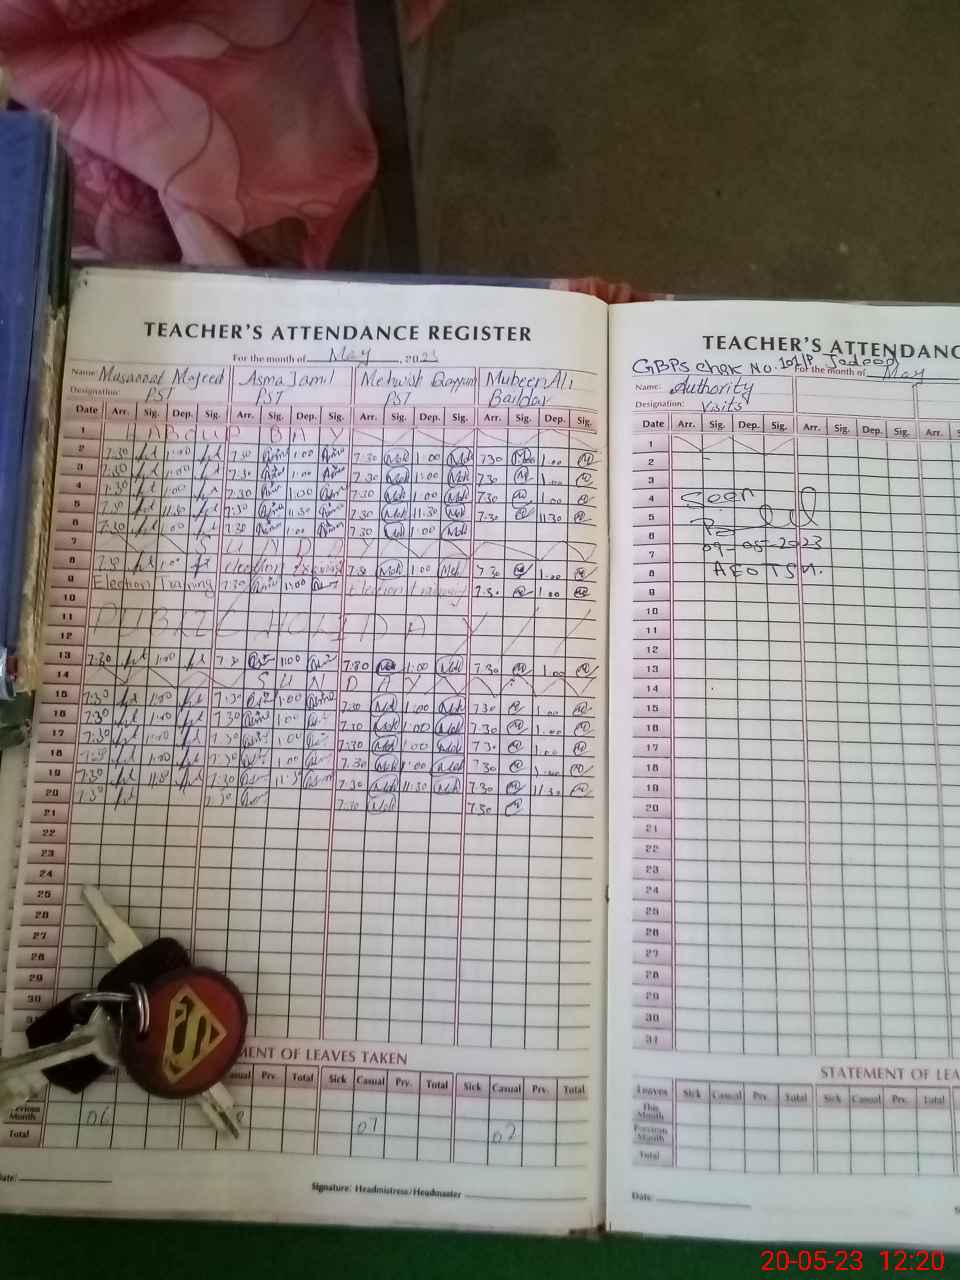 TEACHER'S ATTENDANCE REGISTER
For the month of May, 2023
Name: Musarrat Majeed Asma Jamil Mehwish Qayyum Mubeen Ali
Designation: PST PST PST
Date Arr. Sig. Dep. Sig. Arr. Sig. Dep. Sig. Arr. Sig. Dep. Sig. Arr. Sig. Dep. Sig.
1 LABOUR DAY
2 7:30 1:00 7:30 1:00 7:30 1:00 7:30 1:00
3 7:30 1:00 7:30 1:00 7:30 1:00 7:30 1:00
4 7:30 1:00 7:30 1:00 7:30 1:00 7:30 1:00
5 7:30 11:30 7:30 11:30 7:30 11:30 7:30 11:30
6 7:30 1:00 7:30 7:30 1:00
7 SUNDAY
8 7:30 1:00 Election training 7:30 1:00 7:30 1:00
9 Election Training 7:30 1:00 Election training 7:30 1:00
10
11 PUBLIC HOLIDAY
12
13 7:30 1:00 7:30 1:00 7:30 1:00 7:30 1:00
14 SUNDAY
15 7:30 1:00 7:30 1:00 7:30 1:00 7:30 1:00
16 7:30 1:00 7:30 1:00 7:30 1:00 7:30 1:00
17 7:30 1:00 7:30 1:00 7:30 1:00 7:30 1:00
18 7:30 1:00 7:30 1:00 7:30 1:00 7:30
19 7:30 11:30 7:30 11:30 7:30 11:30 7:30 11:30
20 7:30 7:30 7:30 7:30
21
22
23
24
25
26
27
28
29
30
MENT OF LEAVES TAKEN
Casual Prv. Total Sick Casual Prv. Total Sick Casual Prv. Total
Previous Month 06 07 02
Total
Date:
Signature: Headmistress/Headmaster
TEACHER'S ATTENDANC
GBPS chak No. 101/P
For the month of May
Name: Authority
Designation: Visits
Date Arr. Sig. Dep. Sig. Arr. Sig. Dep. Sig. Arr. S
1
2
3
4 Seen
5
6
7 09-05-2023
8
9
10
11
12
13
14
15
16
17
18
19
20
21
22
23
24
25
26
27
28
29
30
31
STATEMENT OF LEA
Leaves Sick Casual Prv. Total Sick Casual Prv. Total Sick
This Month
Previous Month
Total
Date:
20-05-23 12:20